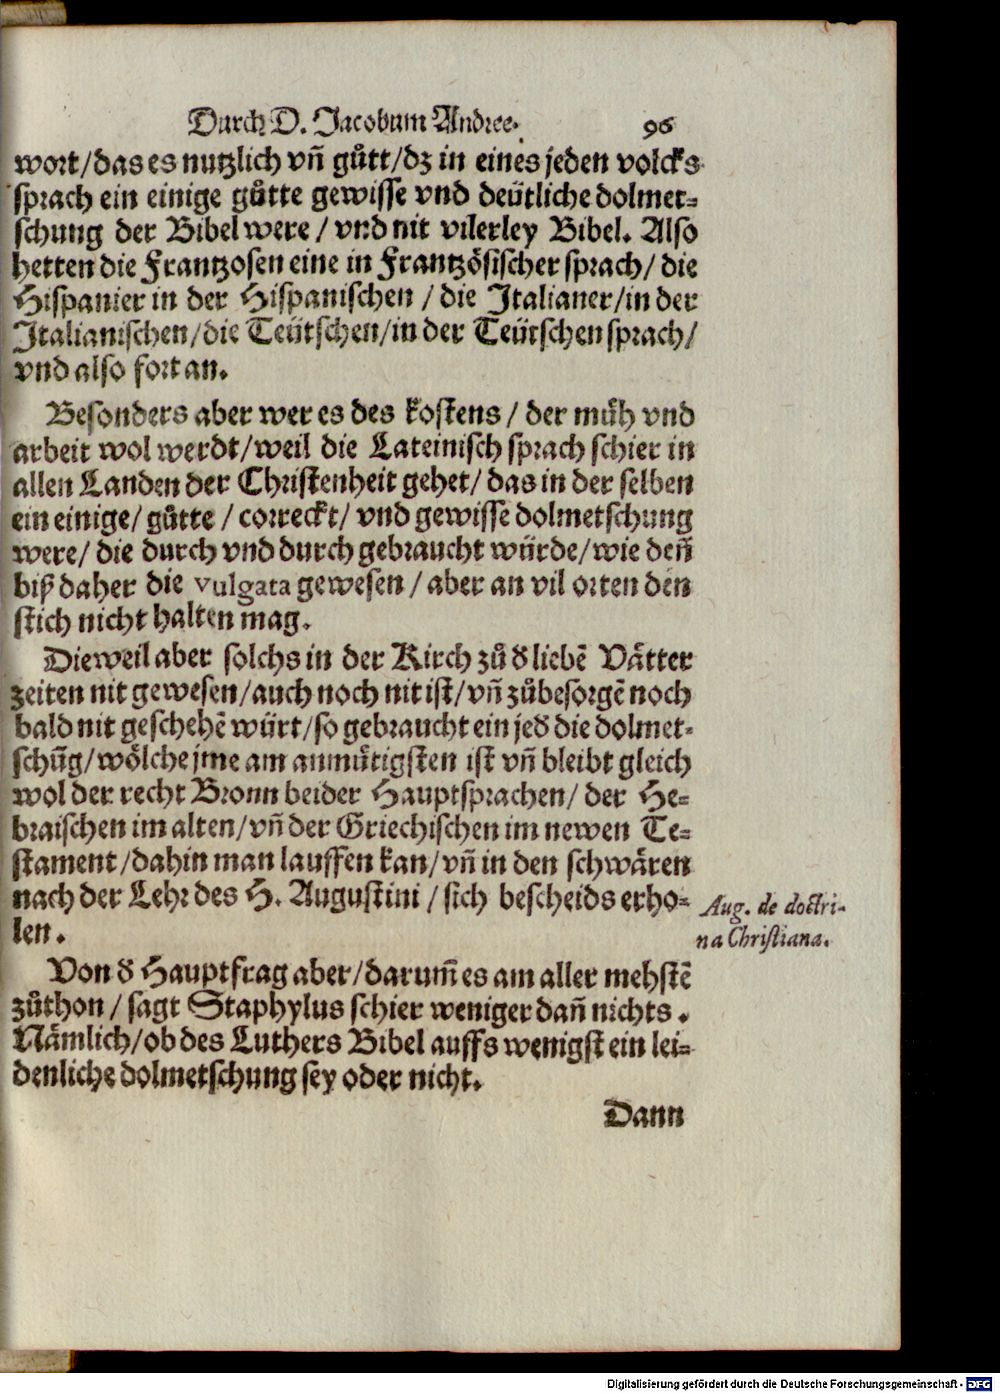 Durch D. Jacobum Andree. 96
wort/das es nutzlich vñ gůtt/dz in eines jeden volcks
sprach ein einige gůtte gewisse vnd deütliche dolmet=
schung der Bibel were / vnd nit vilerley Bibel. Also
hetten die Frantzosen eine in Frantzösischer sprach/ die
Hispanier in der Hispanischen / die Italianer/in der
Italianischen/die Teütschen/in der Teütschen sprach/
vnd also fortan.
Besonders aber wer es des kostens / der müh vnd
arbeit wol werdt/weil die Lateinisch sprach schier in
allen Landen der Christenheit gehet/ das in der selben
ein einige/ gůtte / correckt/ vnd gewisse dolmetschung
were/ die durch vnd durch gebraucht würde/wie deñ
biß daher die vulgata gewesen / aber an vil orten den
stich nicht halten mag.
Dieweil aber solchs in der Kirch zů d̕ liebē Vätter
zeiten nit gewesen/auch noch nit ist/vñ zůbesorgē noch
bald nit geschehē würt/so gebraucht ein jed̕ die dolmet=
schūg/wölche jme am anmütigsten ist vñ bleibt gleich
wol der recht Bronn beider Hauptsprachen/ der He=
braischen im alten/vñ der Griechischen im newen Te=
stament/dahin man lauffen kan/vñ in den schwären
nach der Lehr des H. Augustini / sich bescheids erho=
len.
Aug. de doctri-
na Christiana.
Von d̕ Hauptfrag aber/darum̄ es am aller mehstē
zůthon / sagt Staphylus schier weniger dañ nichts.
Nämlich/ob des Luthers Bibel auffs wenigst ein lei=
denliche dolmetschung sey oder nicht.
Dann
Digitalisierung gefördert durch die Deutsche Forschungsgemeinschaft - DFG